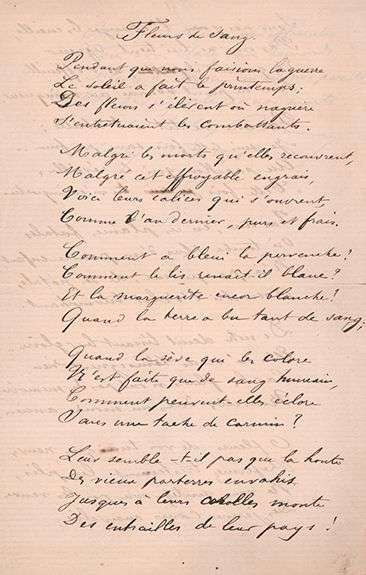 Fleurs de Sang.
Pendant que nous faisions la guerre
Le soleil a fait le printemps;
Des fleurs s'élèvent où naguère
S'entretuaient les combattants.
Malgré les morts qu'elles recouvrent,
Malgré cet effroyable engrais,
Voici leurs calices qui s'ouvrent
Comme l'an dernier, purs et frais.
Comment a bleui la pervenche?
Comment le lis renaît-il blanc?
Et la marguerite encor blanche?
Quand la terre a bu tant de sang;
Quand la sève qui les colore
N'est faite que de sang humain,
Comment peuvent-elles éclore
Sans une tache de carmin?
Leur semble-t-il pas que la honte
Des vieux parterres envahis
Jusques à leurs corolles monte
Des entrailles de leur pays!